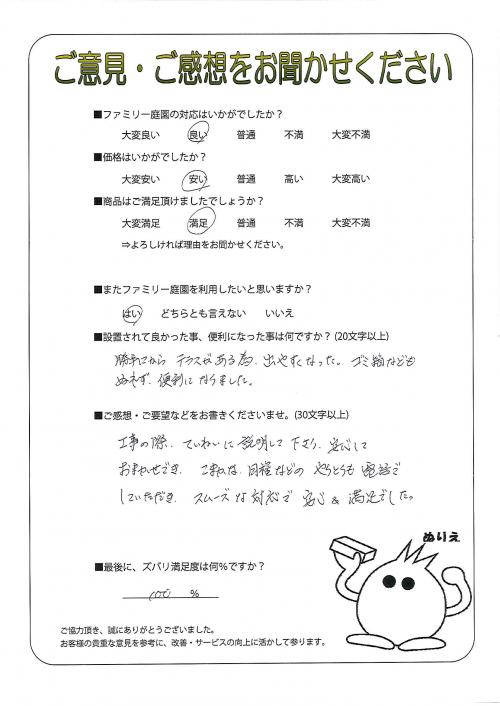 ご意見・ご感想をお聞かせください
■ファミリー庭園の対応はいかがでしたか？
大変良い 良い 普通 不満 大変不満
■価格はいかがでしたか？
大変安い 安い 普通 高い 大変高い
■商品はご満足頂けましたでしょうか？
大変満足 満足 普通 不満 大変不満
⇒よろしければ理由をお聞かせください。
■またファミリー庭園を利用したいと思いますか？
はい どちらとも言えない いいえ
■設置されて良かった事、便利になった事は何ですか？(20文字以上)
勝手口から テラスがある為、出やすくなった。ゴミ箱なども
ぬれず、便利になりました。
■ご感想・ご要望などをお書きくださいませ。(30文字以上)
工事の際、ていねいに説明して下さり、安心して
おまかせでき、こまかな、日程などの やりとりも 電話で
していただき、スムーズな対応で 安心 & 満足でした。
ぬりえ
■最後に、ズバリ満足度は何%ですか？
100 %
ご協力頂き、誠にありがとうございました。
お客様の貴重な意見を参考に、改善・サービスの向上に活かして参ります。